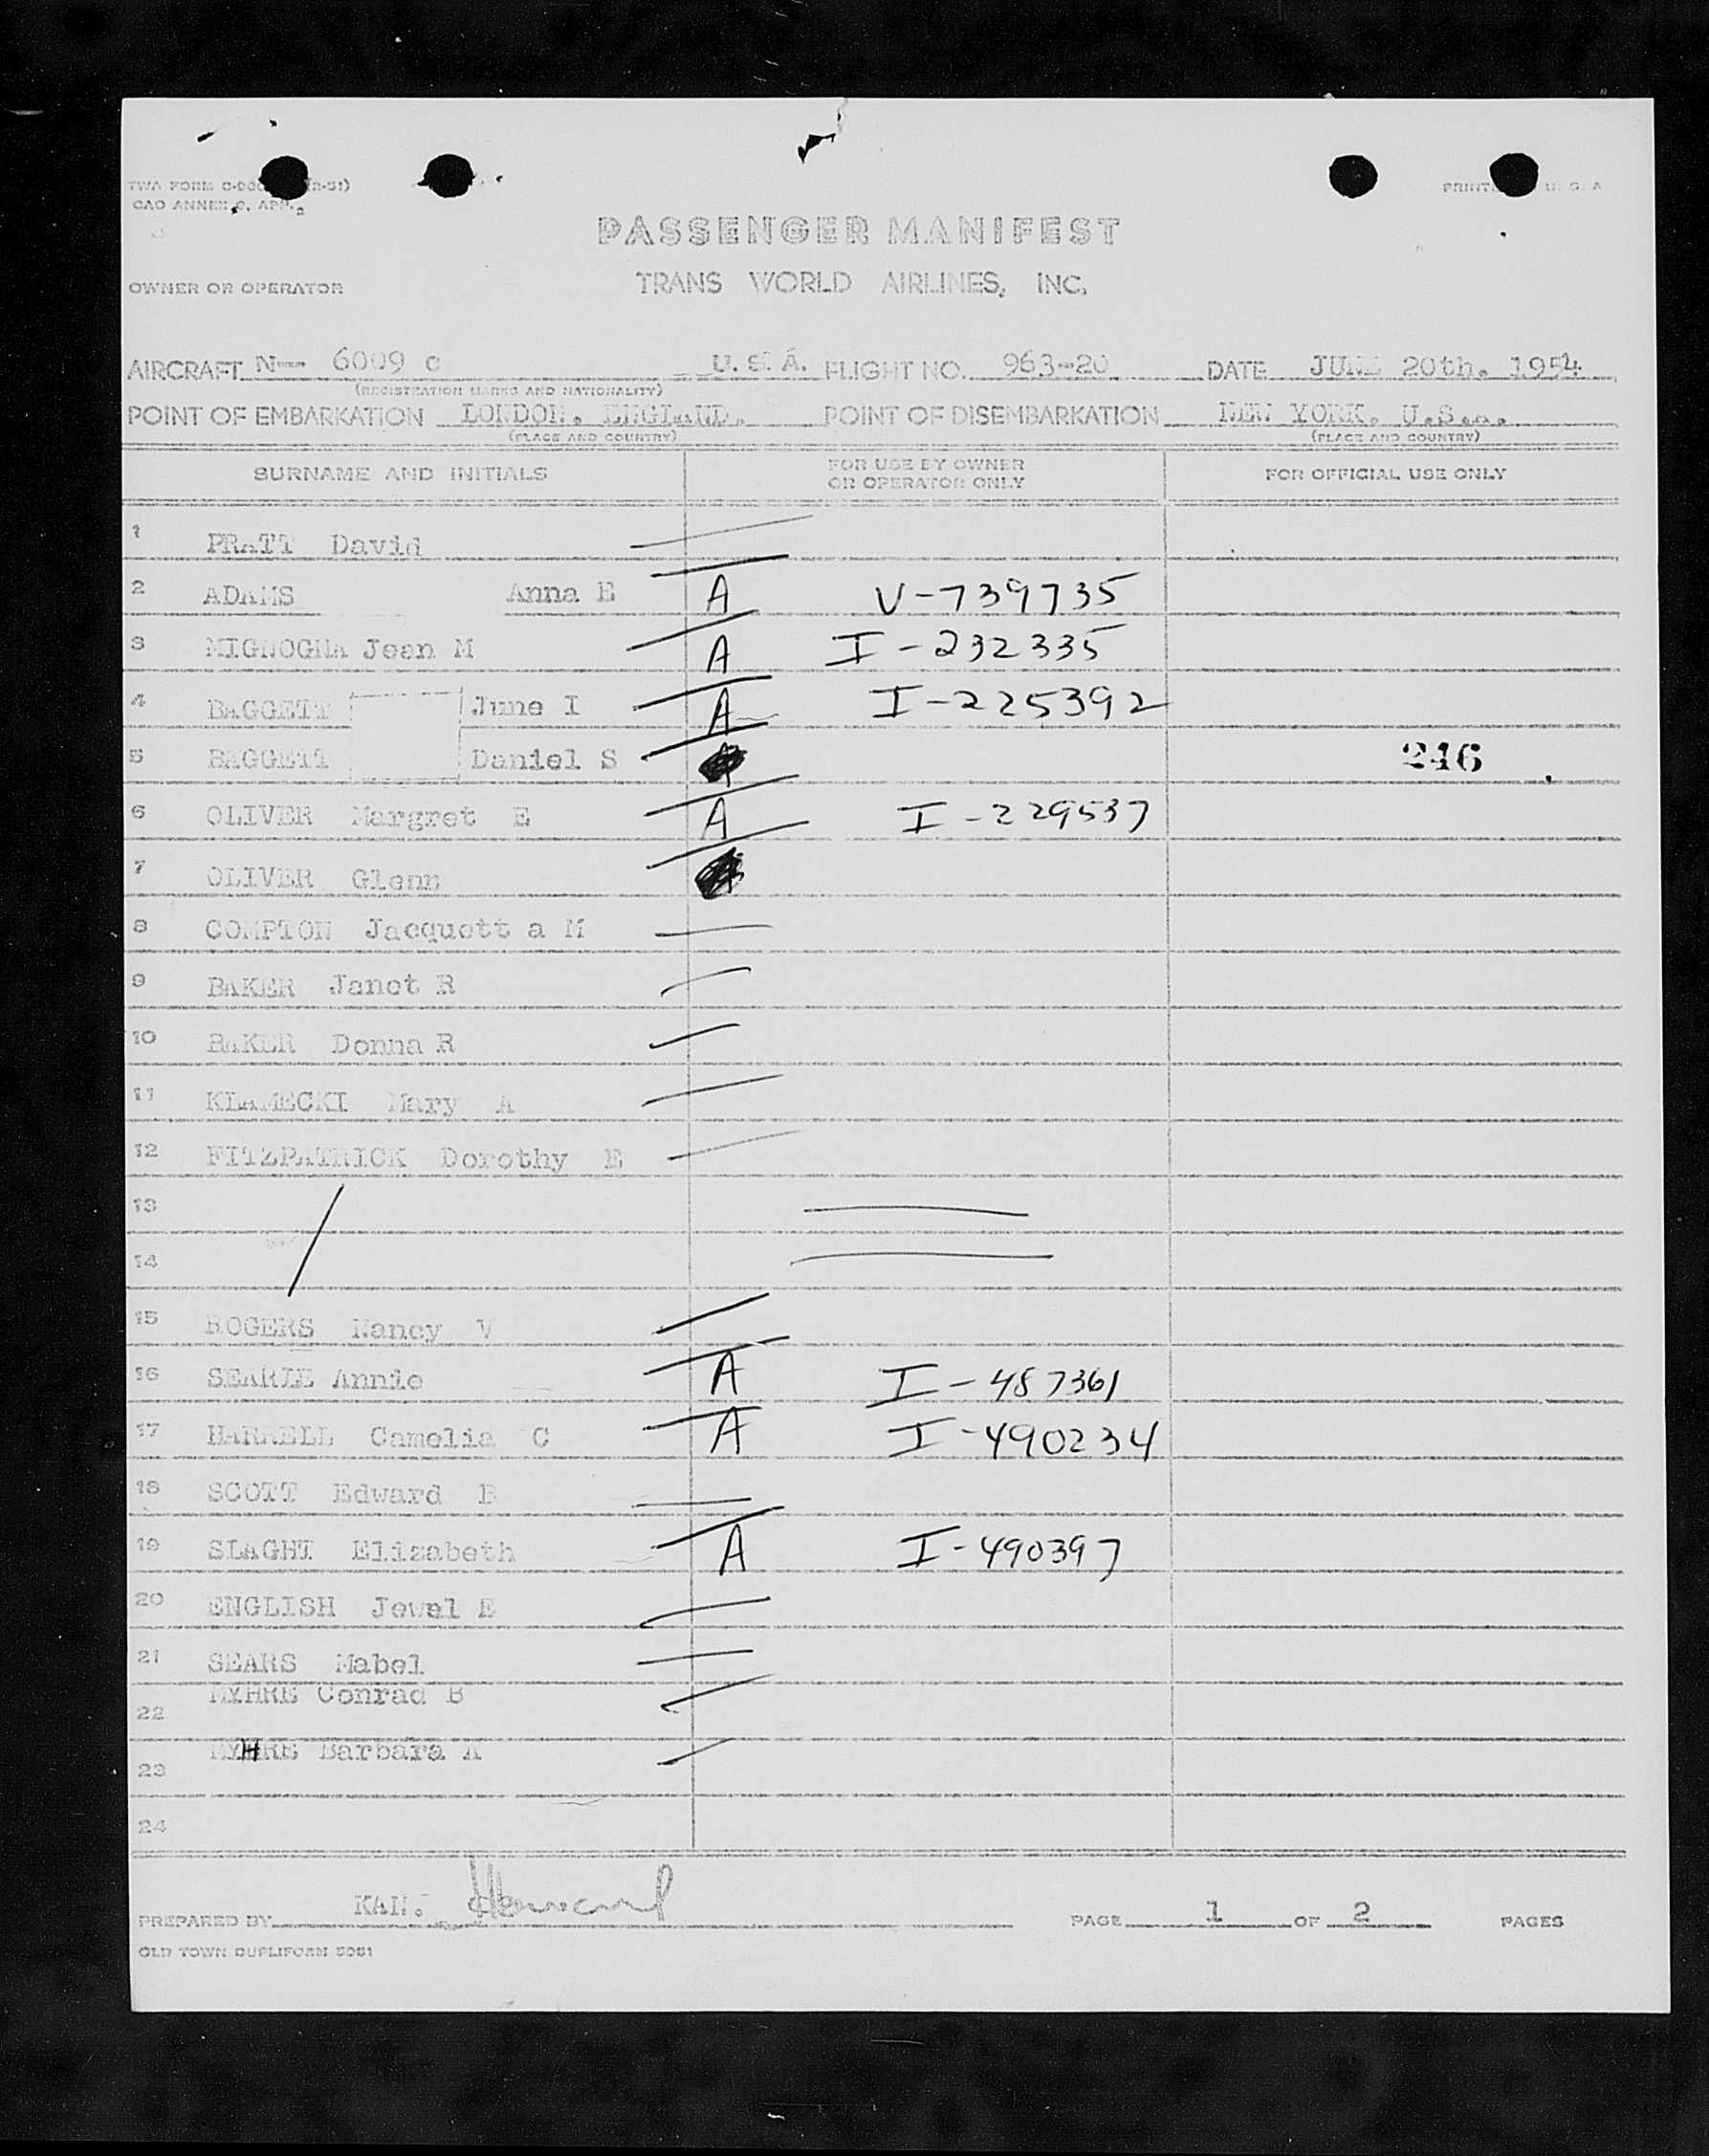 TWA FORM C-
PRINT U. S. A
CAO ANNEX 9, APP. 2
PASSENGER MANIFEST
OWNER OR OPERATOR TRANS WORLD AIRLINES, INC.
AIRCRAFT N-- 6009 c U. S. A. FLIGHT NO. 963-20 DATE JUNE 20th. 1954
(REGISTRATION MARKS AND NATIONALITY)
POINT OF EMBARKATION LONDON. ENGLAND. POINT OF DISEMBARKATION NEW YORK. U.S.A.
(PLACE AND COUNTRY) (PLACE AND COUNTRY)
SURNAME AND INITIALS FOR USE BY OWNER OR OPERATOR ONLY FOR OFFICIAL USE ONLY
1 PRATT David
2 ADAMS Anna E A V-739735
3 MIGNOGNA Jean M A I-232335
4 BAGGETT June I A I-225392
5 BAGGETT Daniel S 246
6 OLIVER Margret E A I-229537
7 OLIVER Glenn
8 COMPTON Jacquett a M
9 BAKER Janet R
10 BAKER Donna R
11 KLAMECKI Mary A
12 FITZPATRICK Dorothy E
13
14
15 ROGERS Nancy V
16 SEARLE Annie A I-487361
17 HARRELL Camelia C A I-490234
18 SCOTT Edward B
19 SLAGHT Elizabeth A I-490397
20 ENGLISH Jewel E
21 SEARS Mabel
22 MYHRE Conrad B
23 MYHRE Barbara A
24
PREPARED BY KAN. Howard PAGE 1 OF 2 PAGES
OLD TOWN DUPLIFORM 5051